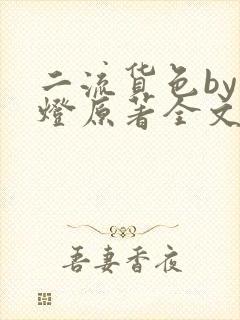 二流货色by
燈原著全文
吾妻香夜